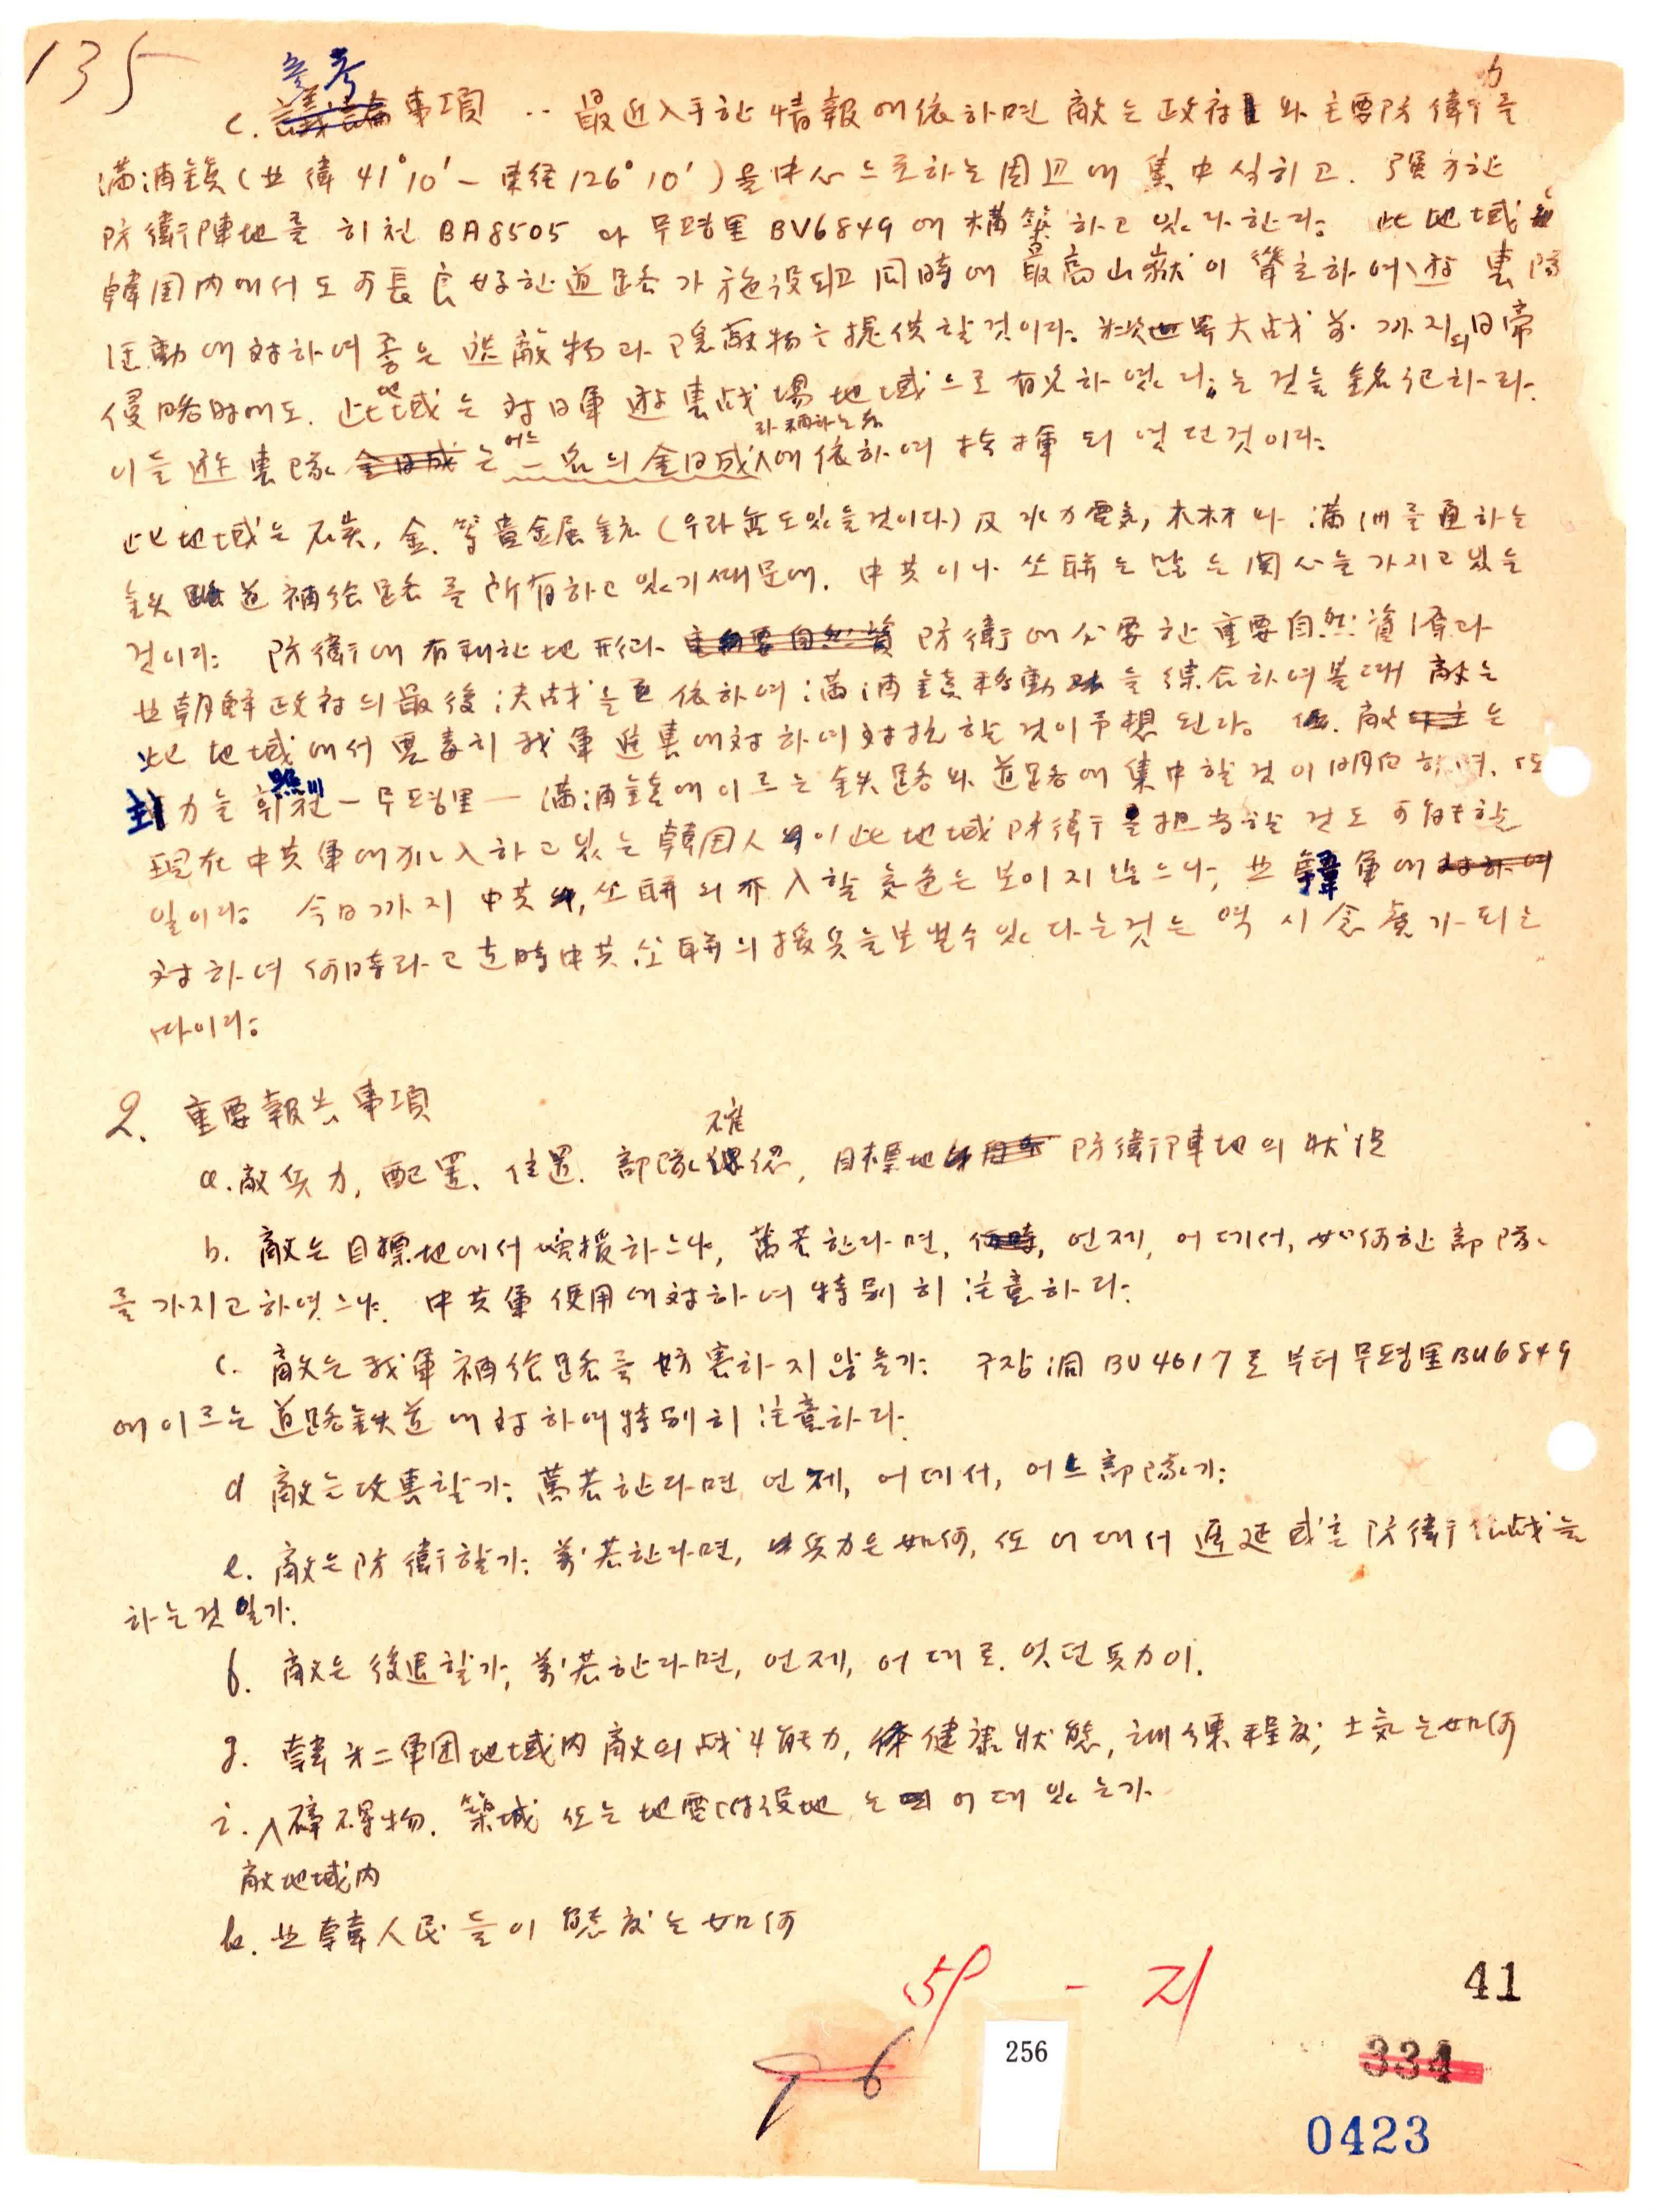 135
參考
c. 事項 .. 最近入手한 情報에 依하면 敵은 政府와 主要防衛力를
滿浦鎭(北緯 41°10′ – 東経 126°10′)을 中心으로하는 周辺에 集中식히고. 强力한
防衛陣地를 히천 BA8505 와 무평里 BV6849 에 構築하고 있다 한다. 此 地域은
韓国内에서도 可長 良好한 道路가 施設되고 同時에 最高山嶽이 聳立하여 遊擊隊
運動에 対하여 좋은 遮蔽物과 隱蔽物을 提供할것이다. 世界大战 前까지의 日帝
侵略時에도. 此地域은 対日軍 遊擊战場 地域으로 有名하였다는 것을 銘記하라.
이들 遊擊隊는 어느 一名의 金日成라 稱하는 者에 依하여 指揮되였던것이다.
此地域은 石炭, 金. 等 貴金属鉱 (우라늄도있을것이다) 及 水力電気, 木材와 滿洲를 通하는
鉄道補給路를 所有하고 있기때문에. 中共이나 쏘聯은 많은 関心을 가지고 있을
것이다. 防衛에 有利한 地形과 防衛에 必要한 重要自然資源과
北朝鮮政府의 最後決战을 依하여 滿浦鎭移動을 綜合하여볼때 敵은
此 地域에서 我軍 進擊에対하여 対抗할 것이 予想된다. 但. 敵은
主力을 熙川 – 무평里 – 滿浦鎭에 이르는 鉄路와 道路에 集中할 것이 明白하며. 또
現在 中共軍에 加入하고 있는 韓国人이 此地域 防衛를 担当할 것도 可能할
일이다. 今日까지 中共, 쏘聯의 介入할 氣色은 보이지 않으나, 北韓軍에
対하여 何時라고 中共 쏘聯의 援兵을 보낼수있다는것은 역시 念慮가 되는
바이다.
2. 重要報告事項
a. 敵兵力, 配置, 位置. 部隊確認, 目標地 防衛陣地의 狀況
b. 敵은 目標地에서 増援하느냐, 萬若한다면, 언제, 어데서, 如何한 部隊
를 가지고하였느냐. 中共軍 使用에対하여 特別히 注意하라.
c. 敵은 我軍 補給路를 妨害하지 않을가. 구장洞 BU4617로 부터 무평里 BU6849
에이르는 道路鉄道에 対하여 特別히 注意하라.
d 敵은 攻擊할가. 萬若한다면 언제, 어데서, 어느 部隊가.
e. 敵은 防衛할가. 萬若한다면, 兵力은 如何, 또 어데서 遲延 或은 防衛作战을
하는것일가.
f. 敵은 後退할가, 萬若한다면, 언제, 어데로. 엇던 兵力이.
g. 韓 第二軍団地域内 敵의 战斗能力, 健康狀態, 訓練程度, 士気는如何
i. 障碍物. 築城 또는 地雷付設地는 어데 있는가
敵地域内
h. 北韓人民들이 態度는 如何
59 - 21
41
96
256
334
0423